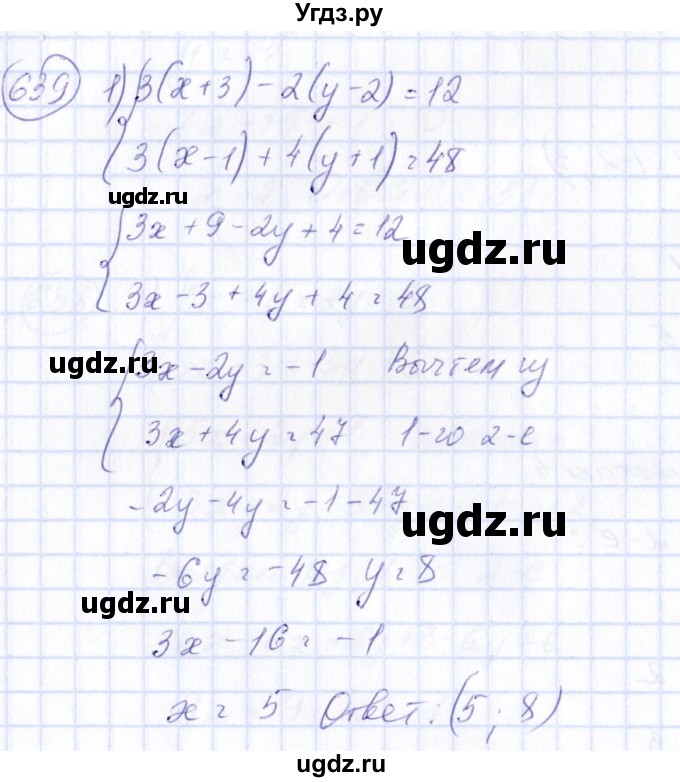 Угдз.ру
639 1) { 3(x+3) - 2(y-2) = 12
3(x-1) + 4(y+1) = 48
ugdz.ru
{ 3x + 9 - 2y + 4 = 12
ugdz.ru
3x - 3 + 4y + 4 = 48
ugdz.ru
{ 3x - 2y = -1 Вычтем из
3x + 4y = 47 1-го 2-е
-2y - 4y = -1 - 47
ugdz.ru
-6y = -48 y = 8
ugdz.ru
3x - 16 = -1
x = 5 Ответ: (5; 8)
ugdz.ru